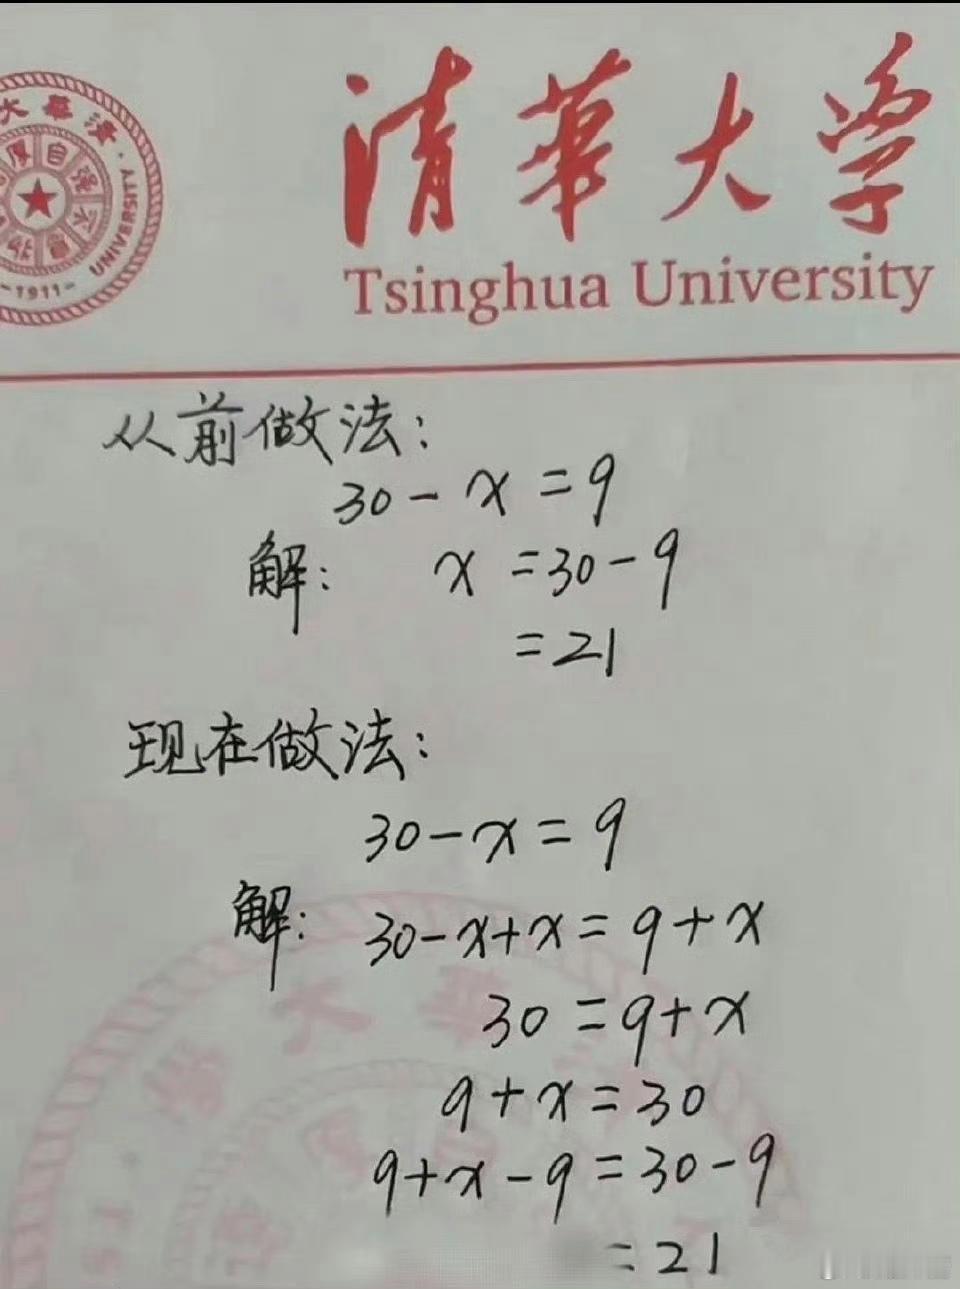 清華大学
Tsinghua University
大華清
自强不
UNIVERSITY
-1911-
从前做法:
30-x=9
解: x=30-9
=21
现在做法:
30-x=9
解: 30-x+x=9+x
30=9+x
9+x=30
9+x-9=30-9
=21